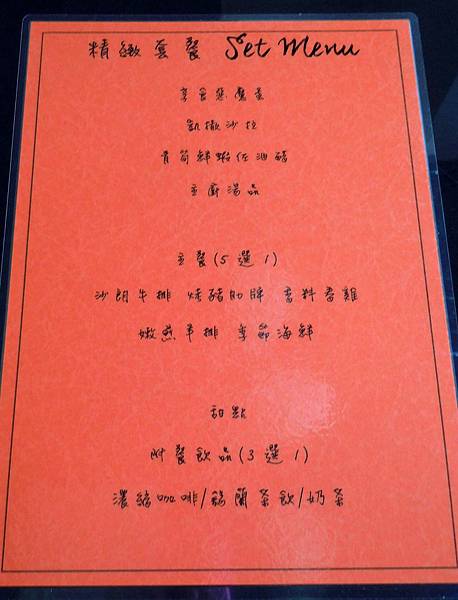 精緻套餐 Set Menu
享食惡魔蛋
凱撒沙拉
青筍鮮蝦佐油醋
主廚湯品
主餐(5選1)
沙朗牛排 烤豬肋脾 香料春雞
嫩煎羊排 季節海鮮
甜點
附餐飲品(3選1)
濃縮咖啡/錫蘭茶飲/奶茶